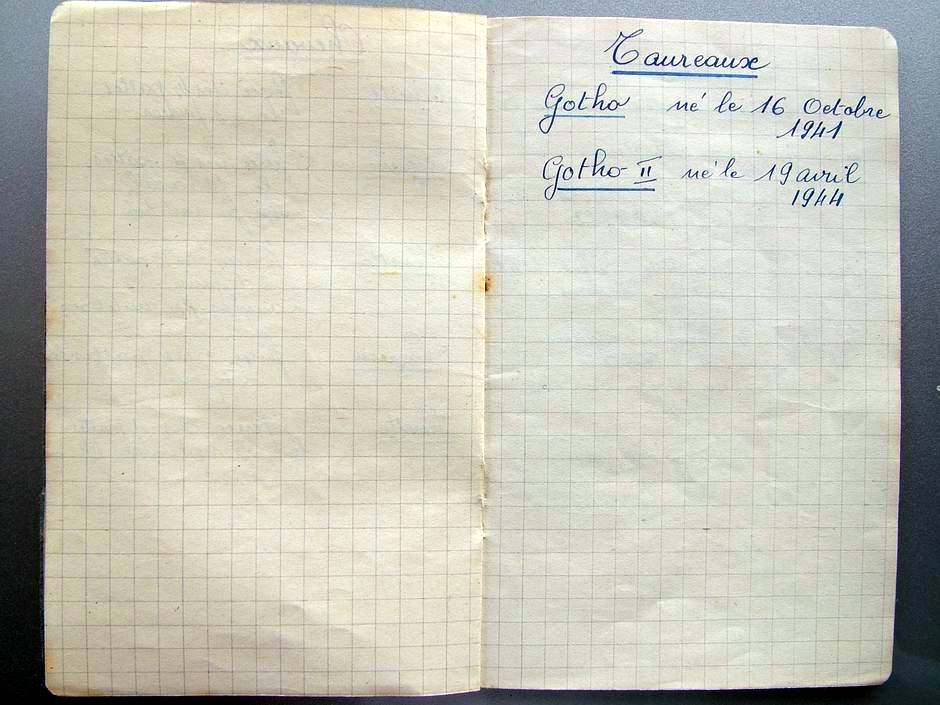 Taureaux
Gotho né le 16 Octobre
1941
Gotho II né le 19 avril
1944